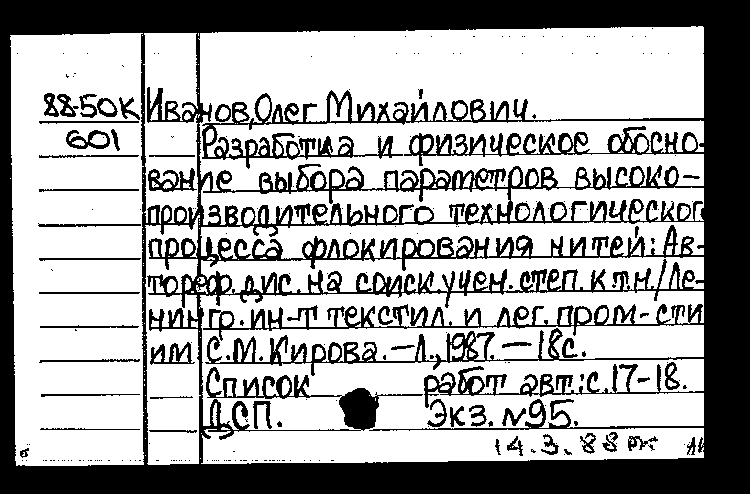 88-50К Иванов, Олег Михайлович.
601 Разработка и физическое обосно-
вание выбора параметров высоко-
производительного технологического
процесса флокирования нитей: Ав-
тореф. дис. на соиск. учен. степ. к.т.н./Ле-
нингр. ин-т текстил. и лег. пром-сти
им С.М. Кирова. — Л., 1987. — 18с.
Список работ авт.: с. 17-18.
ДСП. Экз. №95.
14.3.88